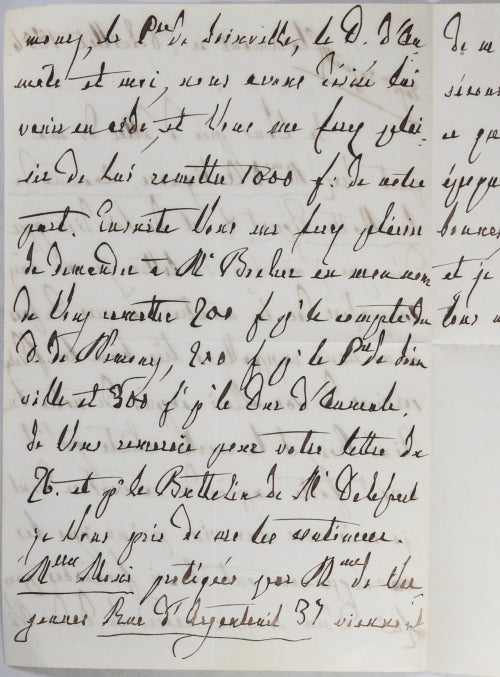 mours, le Pce de Joinville, le D. d'Au
male et moi, nous avons décidé de lui
venir en aide, et Vous me ferez plai-
sir de lui remettre 1000 f. de notre
part. Ensuite Vous me ferez plaisir
de demander à Mr Bocher en mon nom
de Vous remettre 200 f pr le compte du
D. de Nemours, 200 f pr le Pce de Join
ville et 300 f pr le Duc d'Aumale.
Je Vous remercie pour votre lettre du
26. et pr le Bulletin de Mr
je Vous prie de me les continuer.
protégées par Mme de
Rue d'Argenteuil 37 viennent
de m
serons
ce qu
bonnes
et je
tous